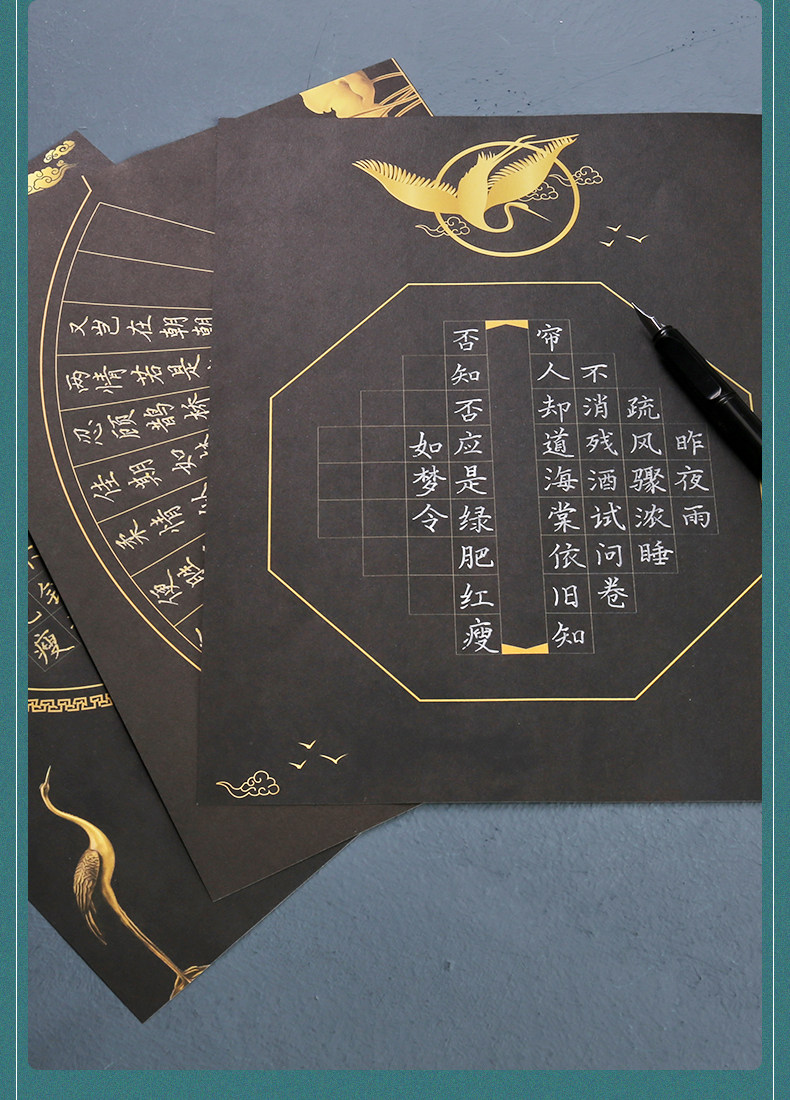 昨夜雨
疏风骤浓睡
不消残酒试问卷
帘人却道海棠依旧知
否知否应是绿肥红瘦
如梦令
便胜
柔情
佳期如
忍顾鹊桥
两情若是
又岂在朝朝
瘦